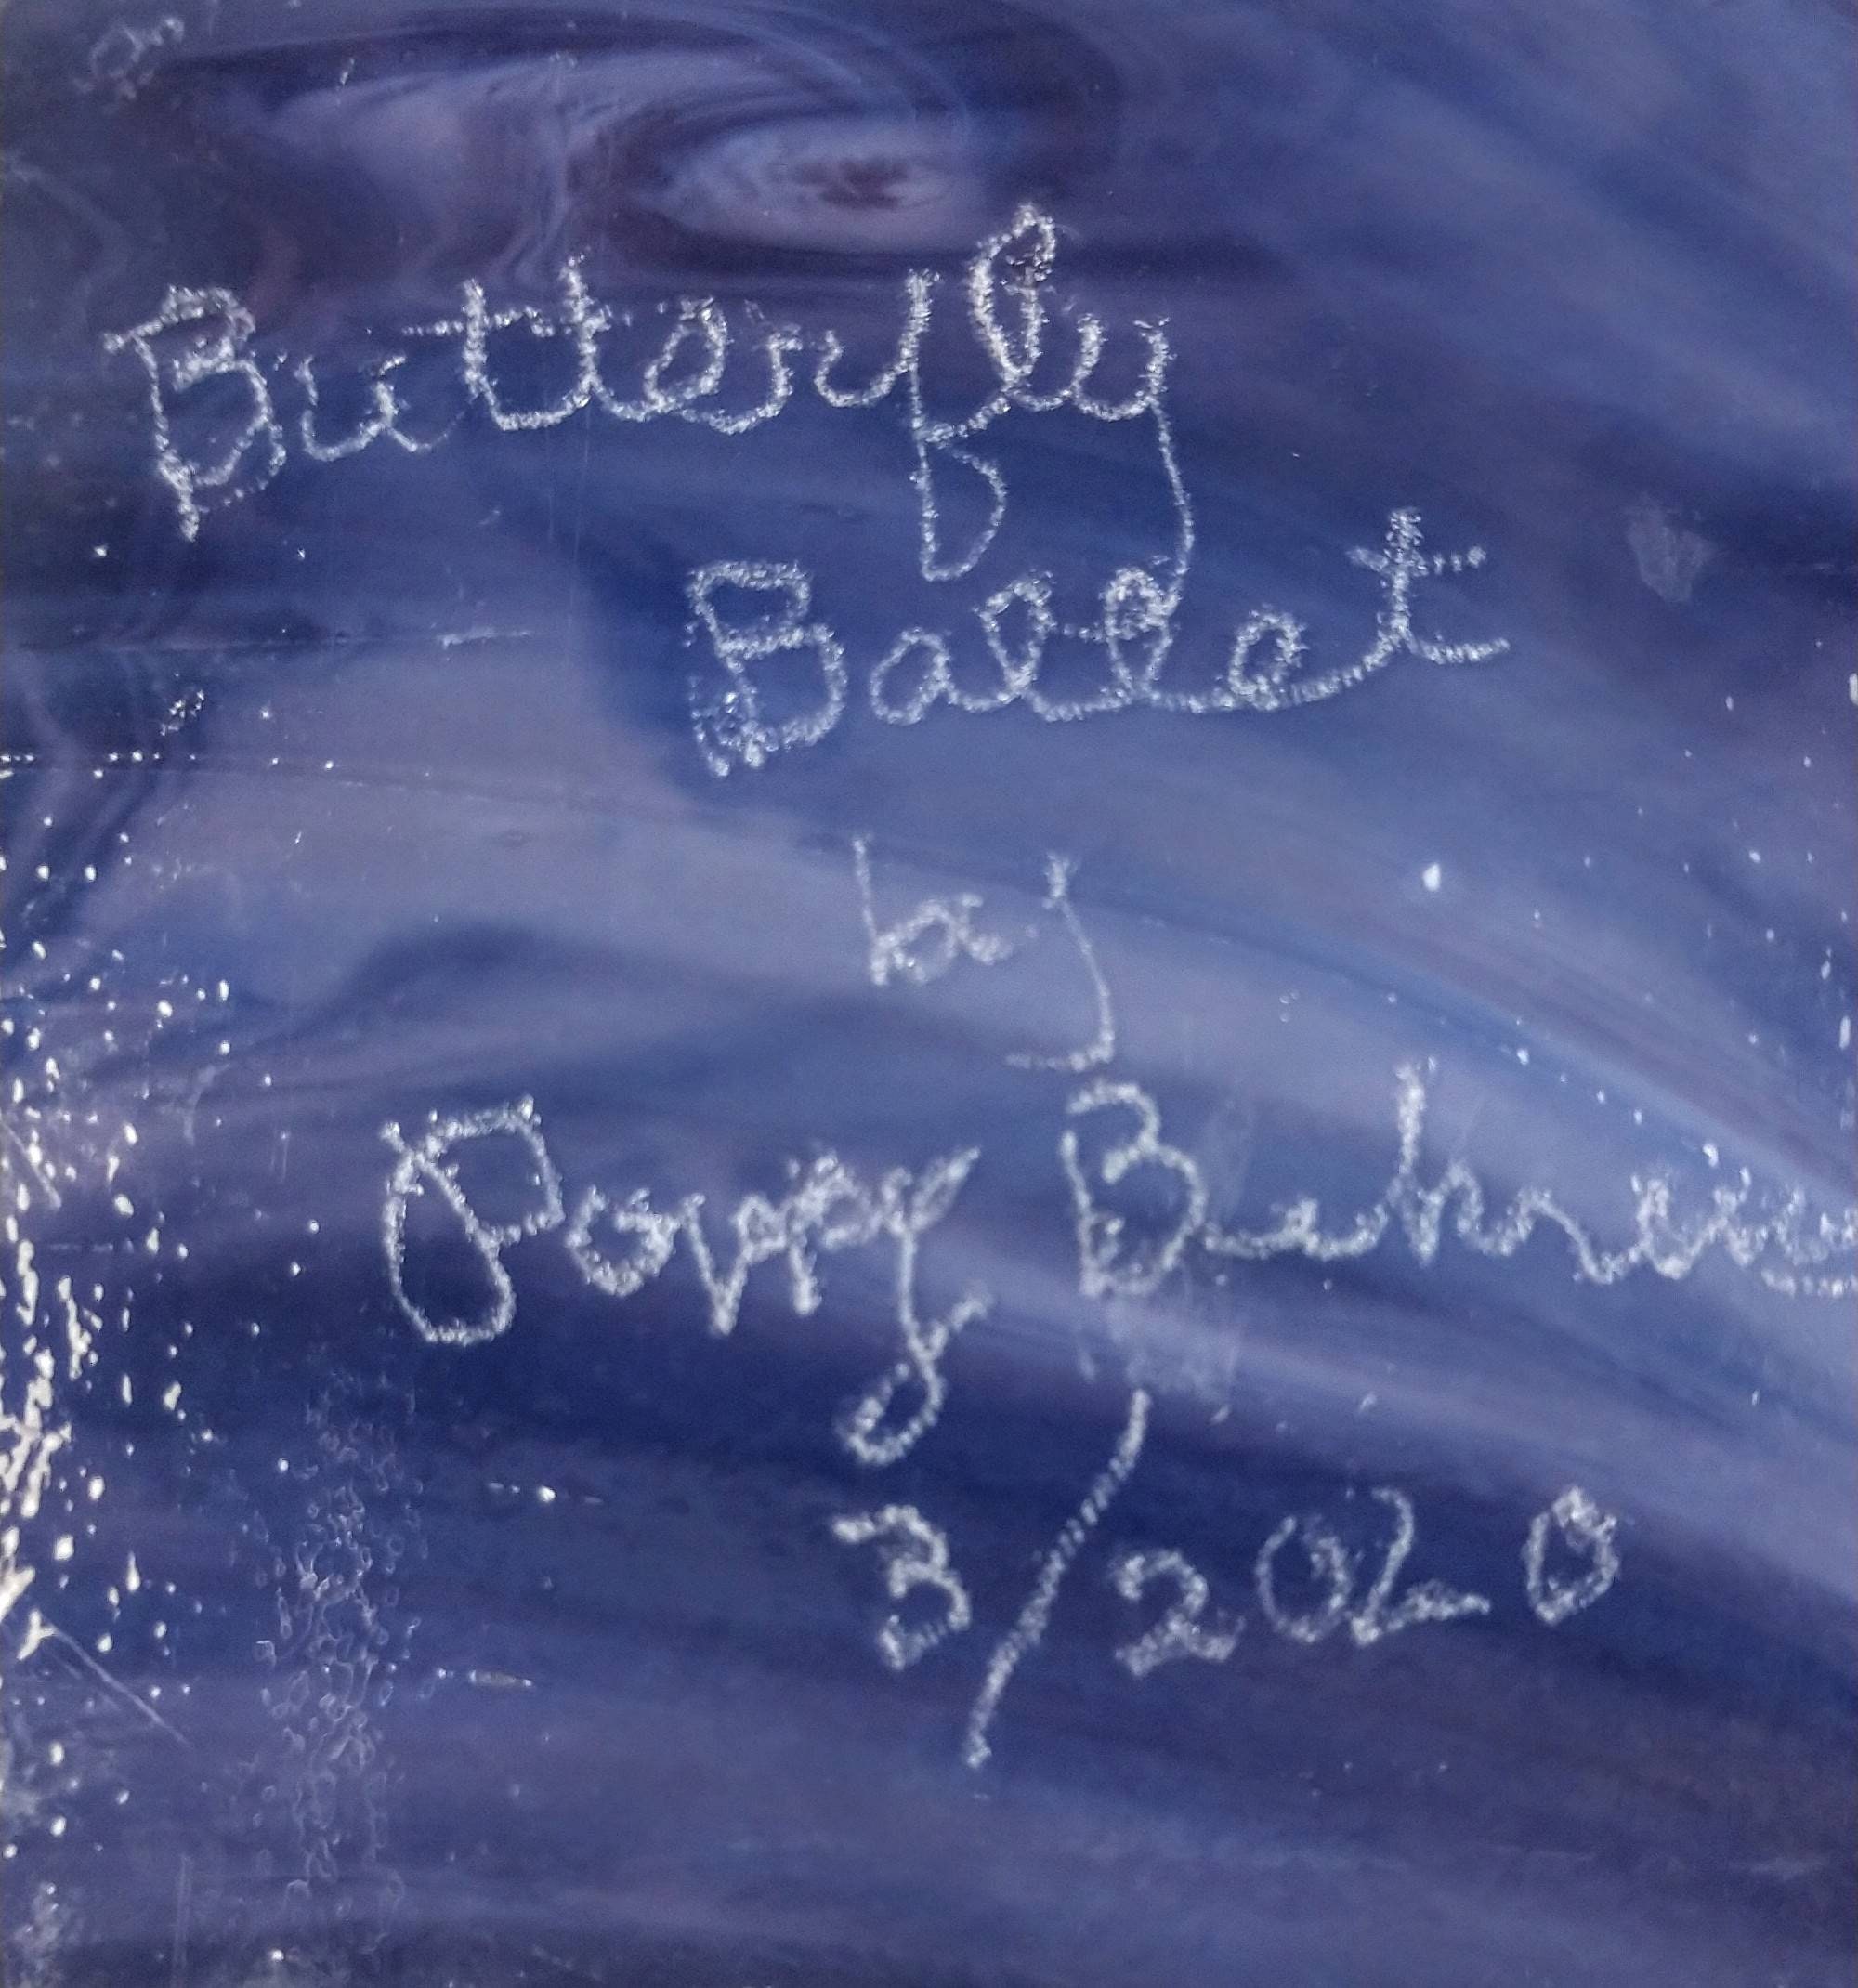 Butterfly
Ballet
by
Poppy
3/2020